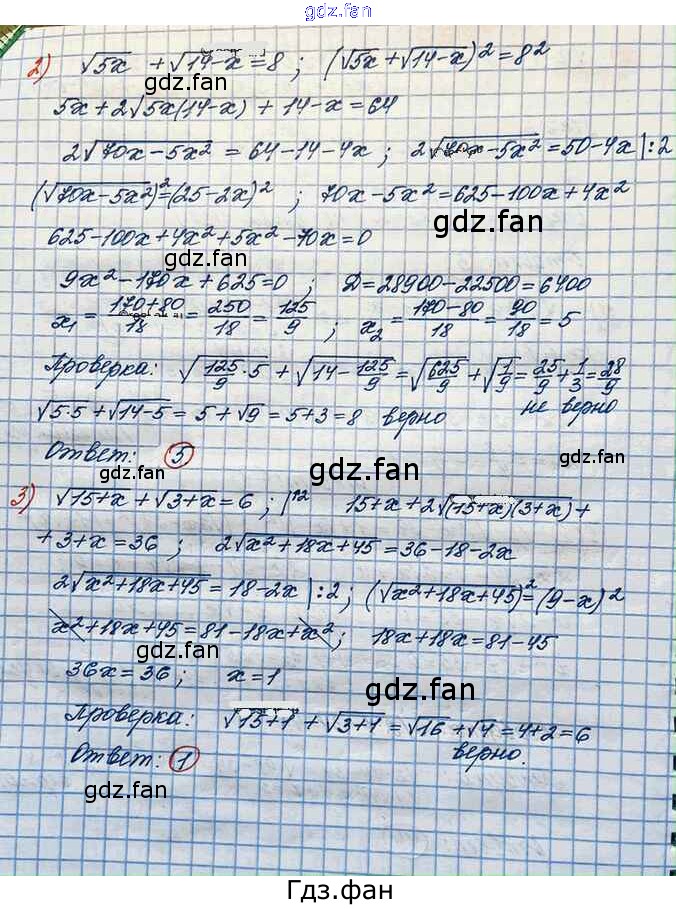 gdz.fan
2) √5x + √14-x = 8 ; (√5x + √14-x)² = 8²
gdz.fan
gdz.fan
5x + 2√5x(14-x) + 14-x = 64
2√70x - 5x² = 64-14-4x ; 2√70x-5x² = 50-4x |:2
(√70x-5x²)² = (25-2x)² ; 70x-5x² = 625-100x+4x²
gdz.fan
625-100x+4x²+5x²-70x=0
gdz.fan
9x²-170x+625=0 ; D=28900-22500=6400
x₁ = 170+80/18 = 250/18 = 125/9 ; x₂ = 170-80/18 = 90/18 = 5
Проверка: √125/9·5 + √14-125/9 = √625/9 + √1/9 = 25/9 + 1/3 = 28/9
gdz.fan
√5·5 + √14-5 = 5+√9 = 5+3 = 8 верно не верно
gdz.fan
Ответ: 5
gdz.fan
3) √15+x + √3+x = 6 ; |² 15+x+2√(15+x)(3+x) +
gdz.fan
+3+x=36 ; 2√x²+18x+45 = 36-18-2x
gdz.fan
2√x²+18x+45 = 18-2x |:2 ; (√x²+18x+45)² = (9-x)²
gdz.fan
x²+18x+45=81-18x+x² ; 18x+18x=81-45
gdz.fan
36x=36 ; x=1
gdz.fan
Проверка: √15+1 + √3+1 = √16 + √4 = 4+2 = 6
gdz.fan
верно.
Ответ: 1
gdz.fan
gdz.fan
Гдз.фан